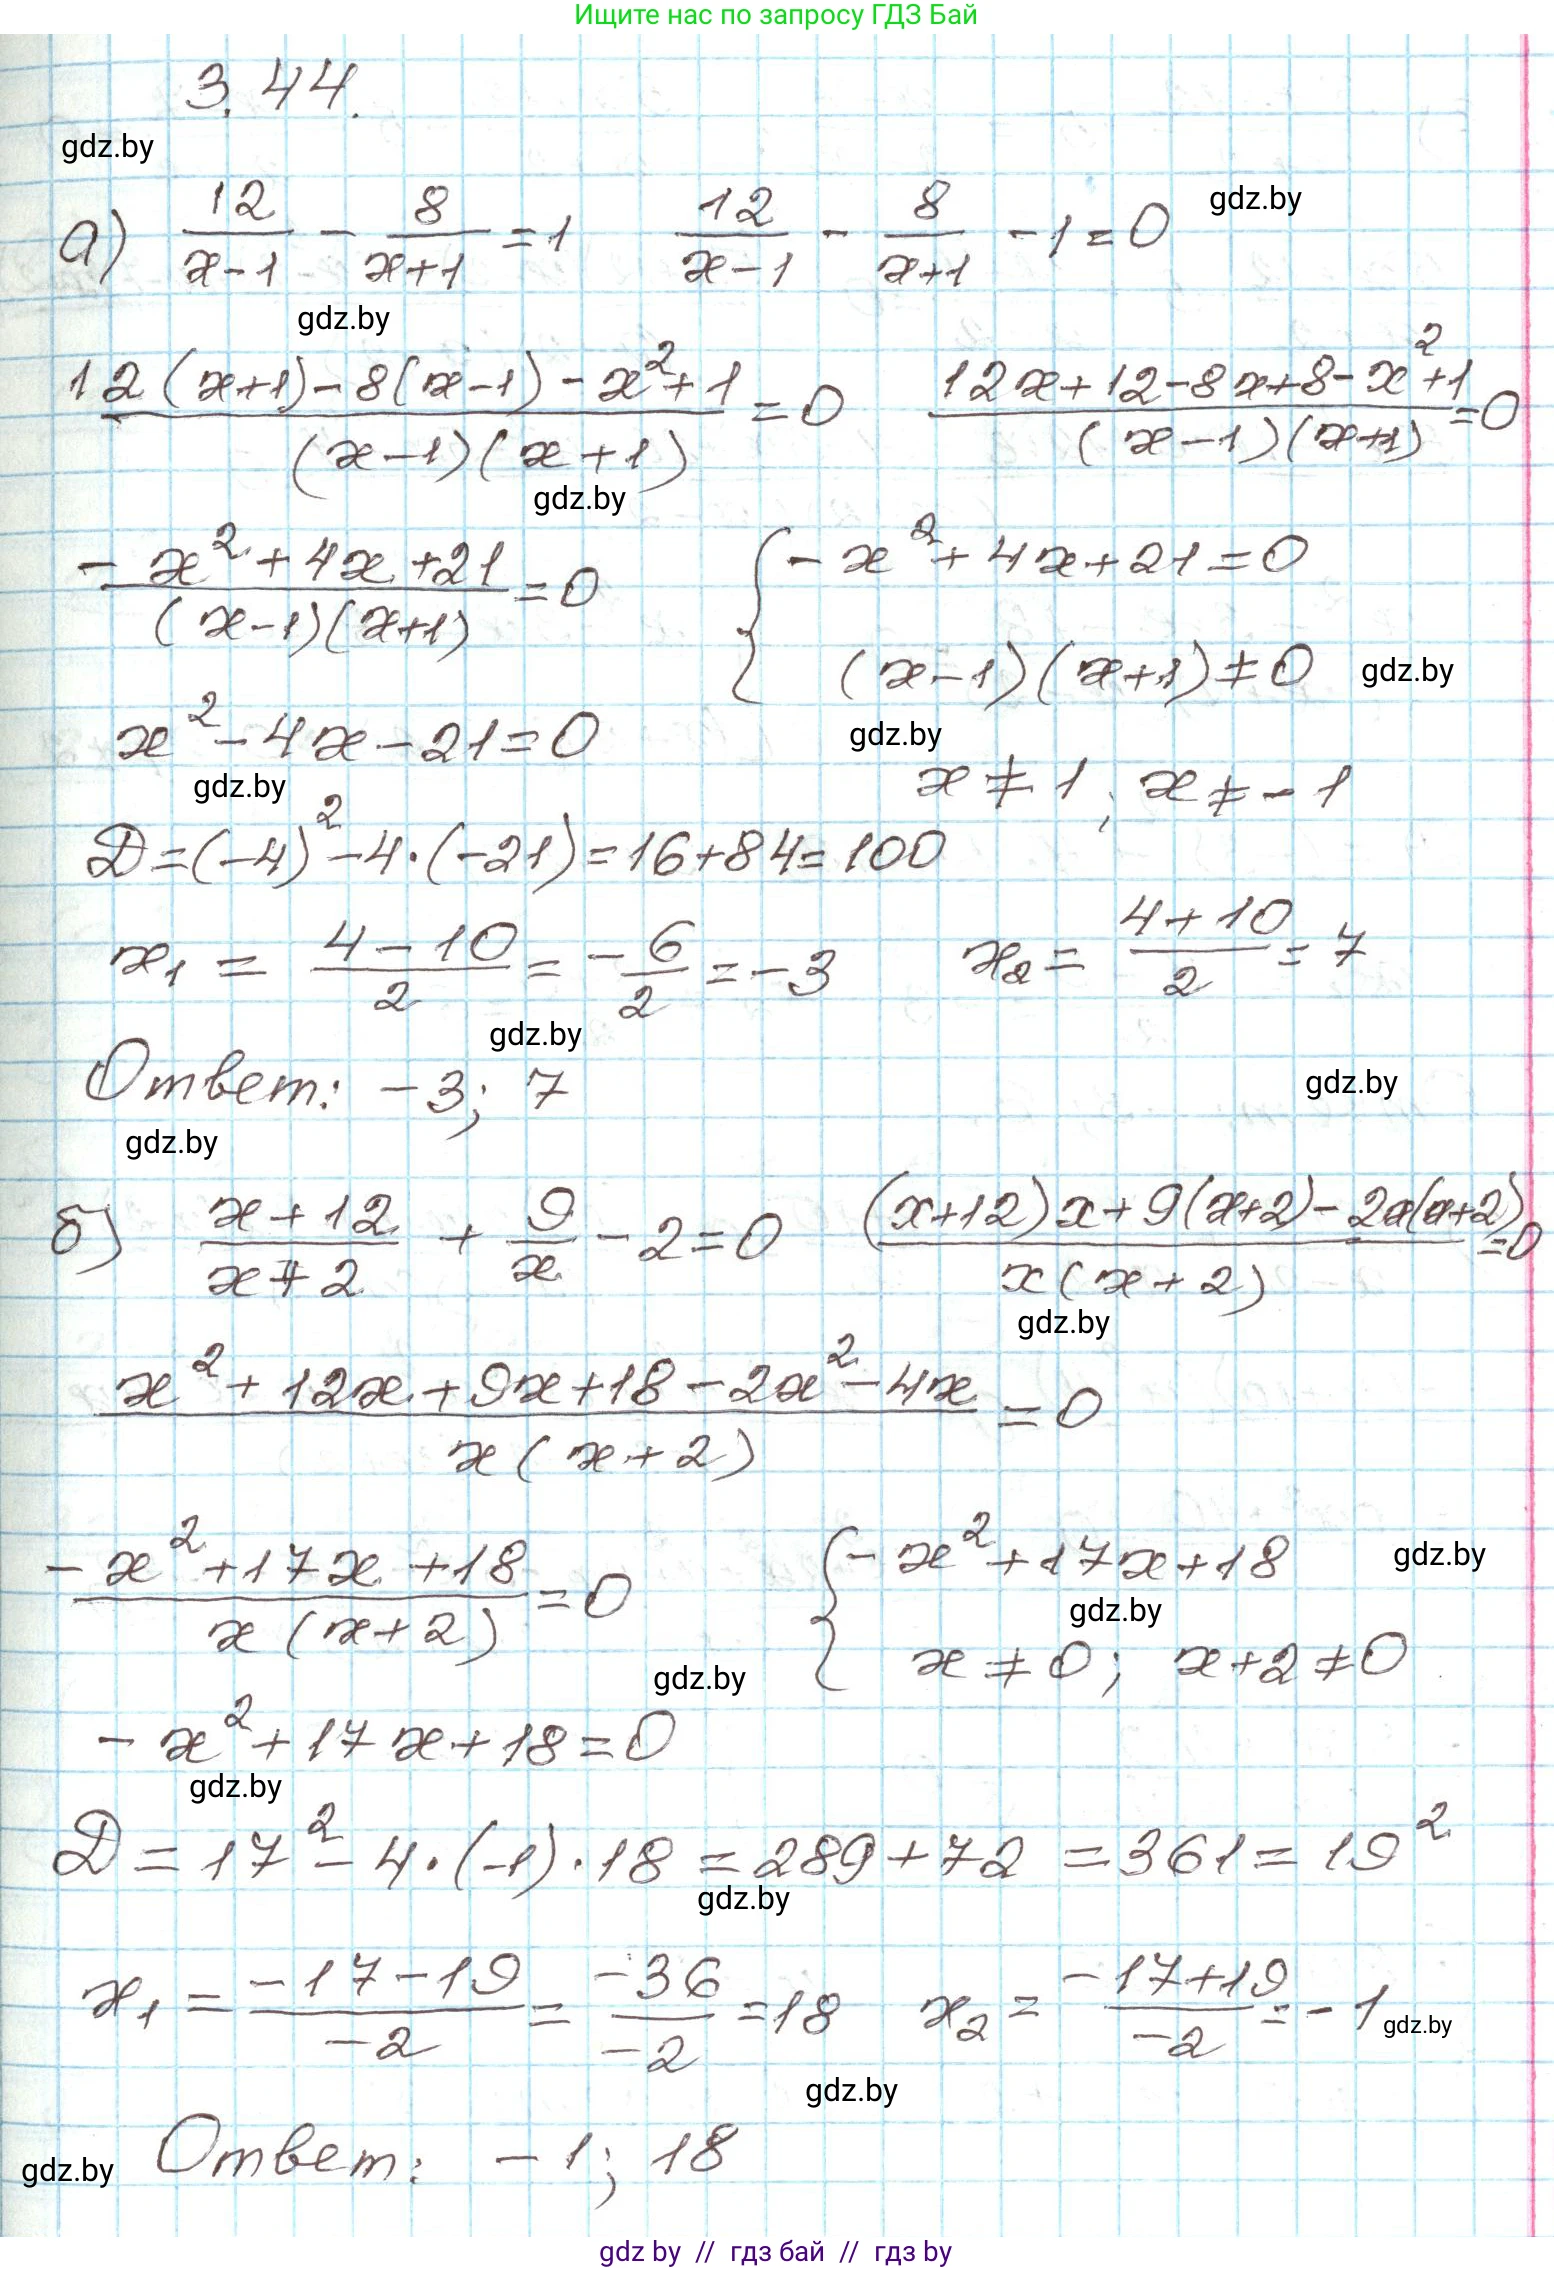 Ищите нас по запросу ГДЗ Бай
3.44.
gdz.by
а) 12/(x-1) - 8/(x+1) = 1    12/(x-1) - 8/(x+1) - 1 = 0
gdz.by
gdz.by
(12(x+1)-8(x-1)-x²+1)/((x-1)(x+1)) = 0    (12x+12-8x+8-x²+1)/((x-1)(x+1)) = 0
gdz.by
(-x²+4x+21)/((x-1)(x+1)) = 0    { -x²+4x+21=0
(x-1)(x+1)≠0
gdz.by
x²-4x-21=0
gdz.by
gdz.by
x≠1; x≠-1
D=(-4)²-4·(-21)=16+84=100
x₁ = (4-10)/2 = -6/2 = -3    x₂ = (4+10)/2 = 7
gdz.by
Ответ: -3; 7
gdz.by
gdz.by
б) (x+12)/(x+2) + 9/x - 2 = 0    ((x+12)x+9(x+2)-2x(x+2))/(x(x+2)) = 0
gdz.by
(x²+12x+9x+18-2x²-4x)/(x(x+2)) = 0
(-x²+17x+18)/(x(x+2)) = 0    { -x²+17x+18
gdz.by
gdz.by
x≠0; x+2≠0
gdz.by
-x²+17x+18=0
gdz.by
D=17²-4·(-1)·18=289+72=361=19²
gdz.by
x₁ = (-17-19)/(-2) = (-36)/(-2) = 18    x₂ = (-17+19)/(-2) = -1
gdz.by
gdz.by
Ответ: -1; 18
gdz.by
gdz by // гдз бай // гдз by